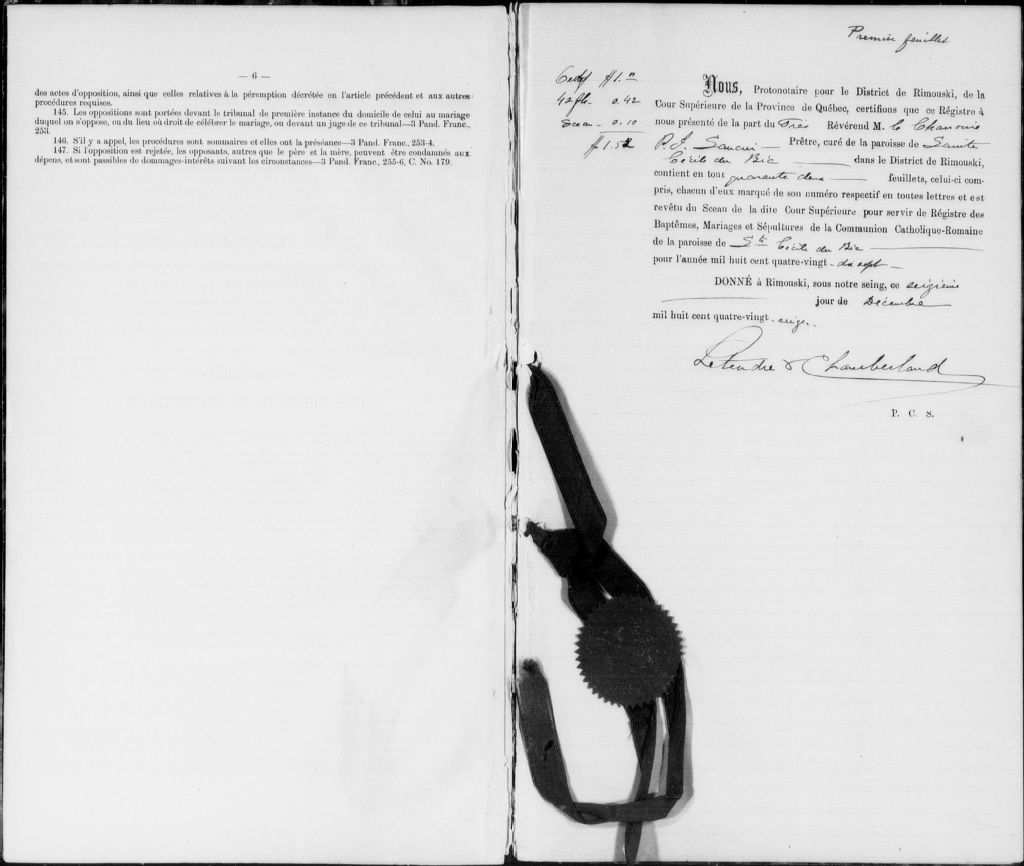 — 6 —
des actes d'opposition, ainsi que celles relatives à la péremption décrétée en l'article précédent et aux autres
procédures requises.
145. Les oppositions sont portées devant le tribunal de première instance du domicile de celui au mariage
duquel on s'oppose, ou du lieu où droit de célébrer le mariage, ou devant un juge de ce tribunal—3 Pand. Franc.,
253.
146. S'il y a appel, les procédures sont sommaires et elles ont la préséance—3 Pand. Franc., 253-4.
147. Si l'opposition est rejetée, les opposants, autres que le père et la mère, peuvent être condamnés aux
dépens, et sont passibles de dommages-intérêts suivant les circonstances—3 Pand. Franc., 255-6, C. No. 179.
Premier feuillet
Certif $1.00
42 flts. 0.42
Sceau - 0.10
$1.52
Nous, Protonotaire pour le District de Rimouski, de la
Cour Supérieure de la Province de Québec, certifions que ce Régistre à
nous présenté de la part du Très Révérend M. le Chanoine
P. J. Saucier — Prêtre, curé de la paroisse de Sainte
Cécile du Bic — dans le District de Rimouski,
contient en tout quarante deux — feuillets, celui-ci com-
pris, chacun d'eux marqué de son numéro respectif en toutes lettres et est
revêtu du Sceau de la dite Cour Supérieure pour servir de Régistre des
Baptêmes, Mariages et Sépultures de la Communion Catholique-Romaine
de la paroisse de Ste Cécile du Bic —
pour l'année mil huit cent quatre-vingt - dix sept —
DONNÉ à Rimouski, sous notre seing, ce seizième
— jour de Décembre
mil huit cent quatre-vingt - seize -
Letendre & Chamberland
P. C. S.